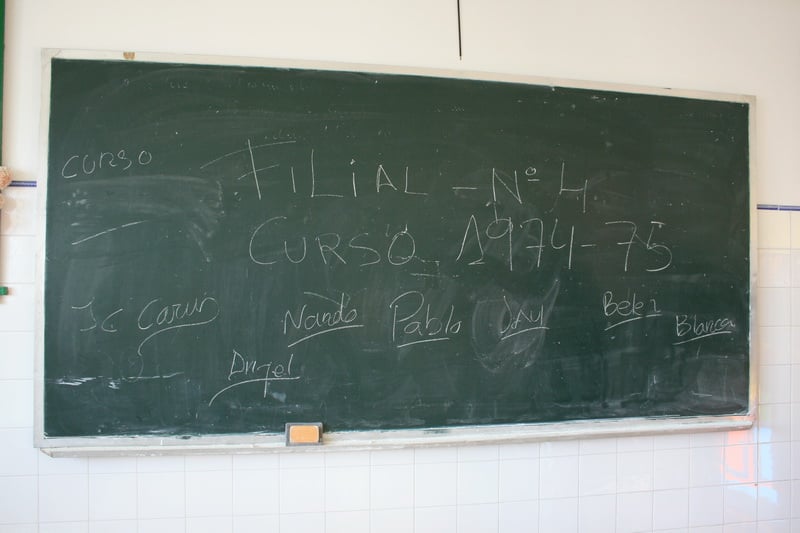 CURSO
FILIAL - Nº 4
CURSO 1974-75
Nando Pablo JAY Belen Blanca